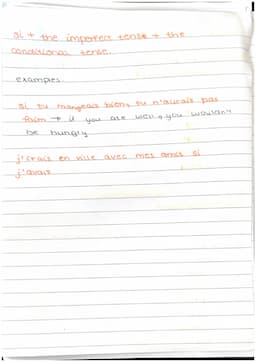 si + the imperfect tense + the
conditional tense.
examples
si tu mangeais bien, tu n'aurais pas
faim → if you ate well, you wouldn't
be hungry
j'irais en ville avec mes amis si
j'avais